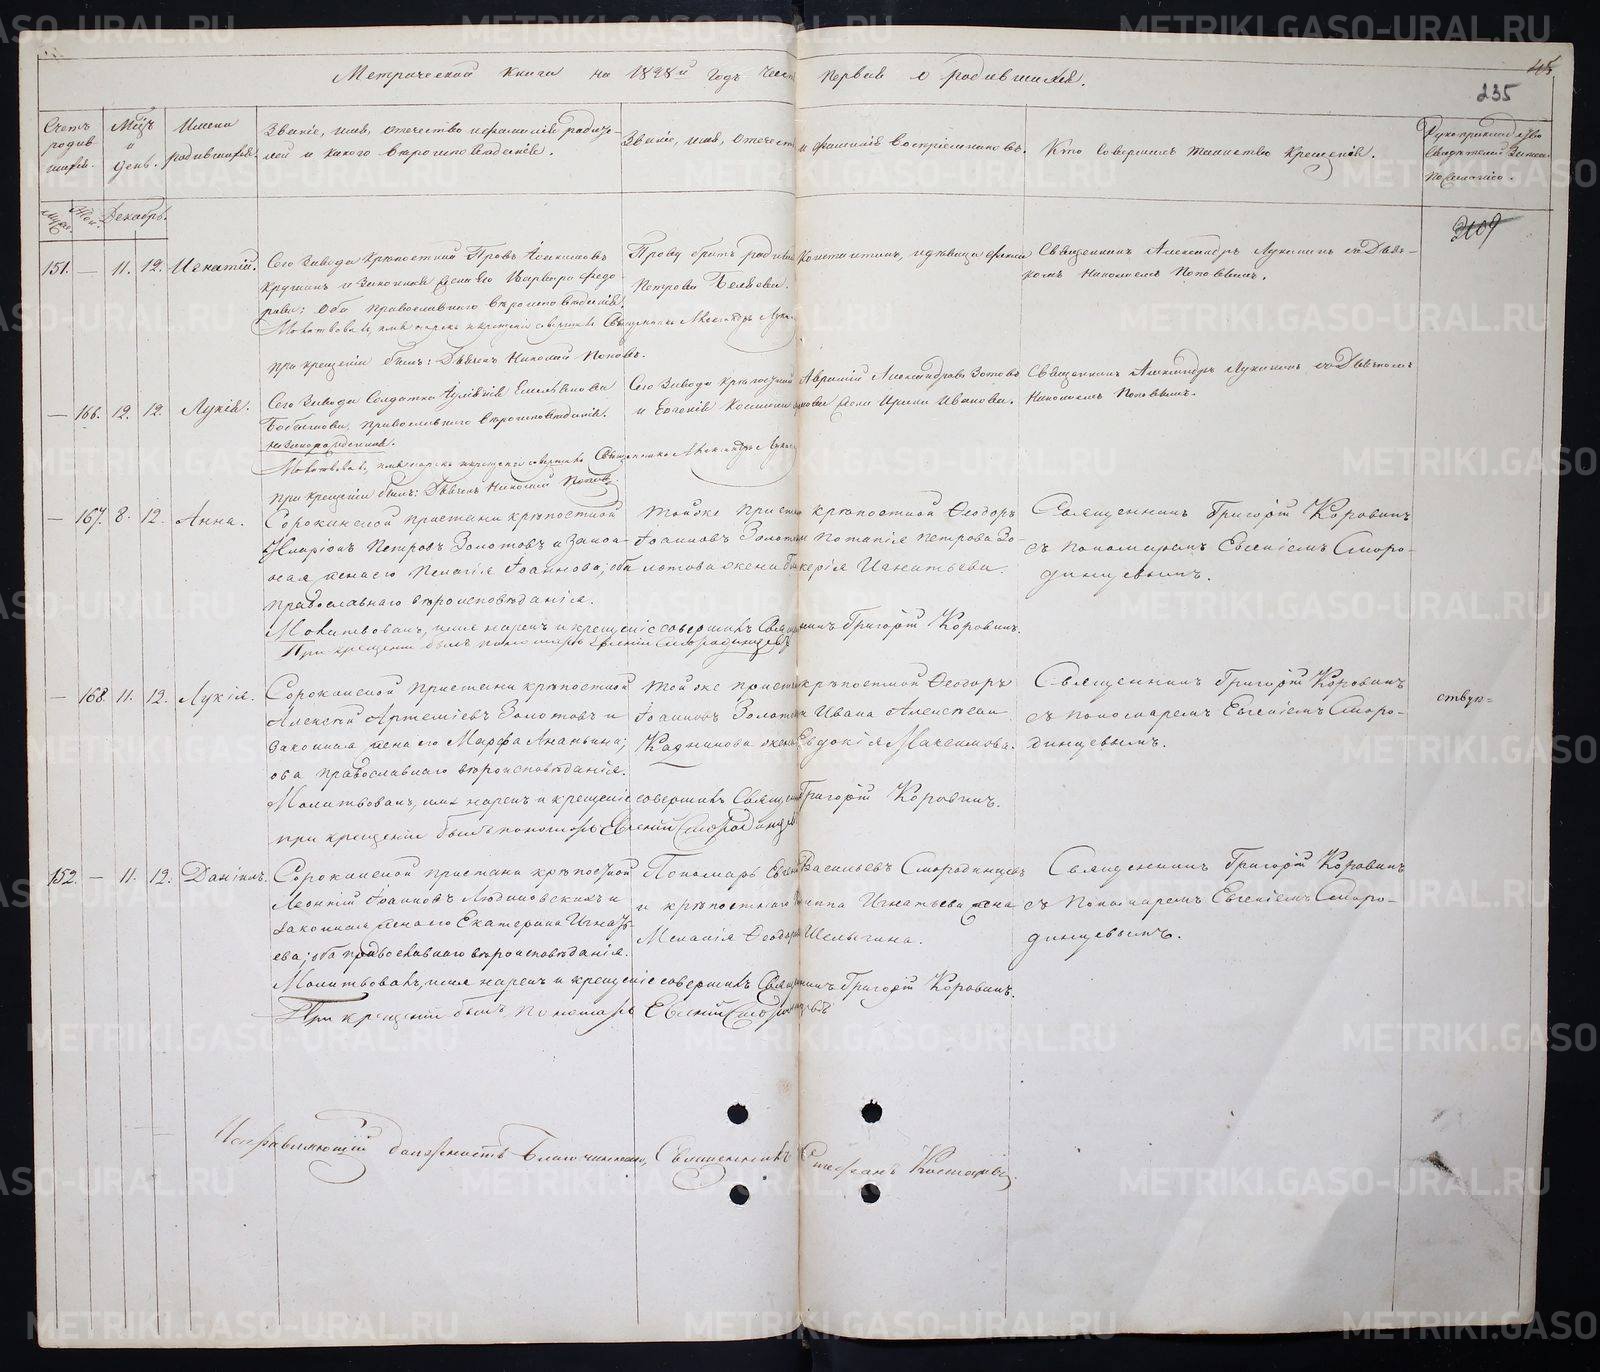 Метрической книги на 18 годъ часть первая о родившихся.
235
Счетъ родив-шихся.
Мѣсяцъ и день.
Имена родившихся.
Званіе, имя, отечество и фамилія родите-
лей и какого вѣроисповѣданія.
Званіе, имя, отечество и фамилія воспріемниковъ.
Кто совершалъ таинство крещенія.
Рукоприкладство
свидѣтелей записи
по желанію.
Декабрь.
3109
151. — 11. 12. Игнатій.
Сего завода крѣпостной Провъ
и законная жена его Варвара Федо-
рова; оба православнаго вѣроисповѣданія.
Прову братъ родный Константинъ, и дѣвица
Петрова Беляева.
Священникъ Александръ Луканинъ съ Дьяч-
комъ Николаемъ Поповымъ.
Молитвовалъ, имя нарекъ и крещеніе совершилъ Священникъ Александръ
при крещеніи былъ: Дьячекъ Николай Поповъ.
— 166. 12. 12. Лукія.
Сего завода Солдатка Емельянова
православнаго вѣроисповѣданія.
незаконнорожденная.
Сего завода крѣпостной Аврамій Александровъ Зотовъ
и Евгенія Космина жена Ирина Иванова.
Священникъ Александръ Луканинъ съ Дьячкомъ
Николаемъ Поповымъ.
Молитвовалъ, имя нарекъ и крещеніе совершилъ Священникъ Александръ
при крещеніи былъ: Дьячекъ Николай Поповъ.
— 167. 8. 12. Анна.
Сорокинской пристани крѣпостной
Иларіонъ Петровъ Золотовъ и закон-
ная жена его Пелагія Іоаннова; оба
православнаго вѣроисповѣданія.
Той же пристани крѣпостной Ѳеодоръ
Іоанновъ Золотовъ и Потапія Петрова Зо-
лотова жена Гликерія Игнатьева.
Священникъ Григорій Коровинъ
съ пономаремъ Евгеніемъ Сморо-
динцевымъ.
Молитвовалъ, имя нарекъ и крещеніе совершилъ Священникъ Григорій Коровинъ.
При крещеніи былъ пономарь Евгеній Смородинцевъ
— 168. 11. 12. Лукія.
Сорокинской пристани крѣпостной
Алексій Артеміевъ Золотовъ и
законная жена его Марфа Ананьина;
оба православнаго вѣроисповѣданія.
Той же пристани крѣпостной Ѳеодоръ
Іоанновъ Золотовъ и Ивана Алексѣева
Кадникова жена Евдокія Максимова.
Священникъ Григорій Коровинъ
съ пономаремъ Евгеніемъ Сморо-
динцевымъ.
ствую=
Молитвовалъ, имя нарекъ и крещеніе совершилъ Священникъ Григорій Коровинъ.
при крещеніи былъ пономарь Евгеній Смородинцевъ
152. — 11. 12. Даніилъ.
Сорокинской пристани крѣпостной
Леонтій Іоанновъ Людиновскихъ и
законная жена его Екатерина Игнать-
ева; оба православнаго вѣроисповѣданія.
Пономарь Евгеній Васильевъ Смородинцевъ
и крѣпостнаго Филиппа Игнатьева жена
Меланія Ѳеодорова Шелыгина.
Священникъ Григорій Коровинъ
съ пономаремъ Евгеніемъ Сморо-
динцевымъ.
Молитвовалъ, имя нарекъ и крещеніе совершилъ Священникъ Григорій Коровинъ.
При крещеніи былъ пономарь Евгеній Смородинцевъ
Исправляющій должность Благочиннаго, Священникъ Стефанъ
METRIKI.GASO-URAL.RU